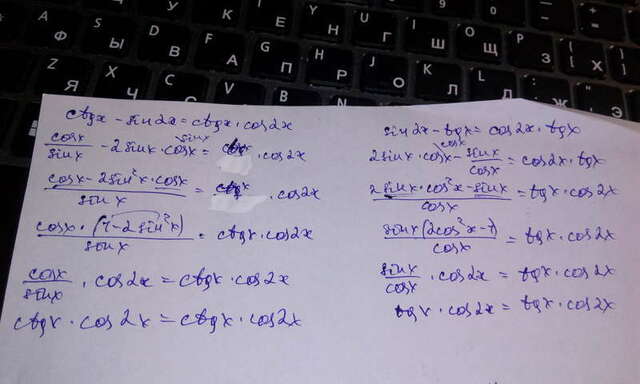 ctgx - sin2x = ctgx · cos2x
cosx/sinx - 2sinx · cosx^(sinx = · cos2x
cosx - 2sin²x · cosx / sinx = · cos2x
cosx · (1 - 2sin²x) / sinx = ctgx · cos2x
cosx/sinx · cos2x = ctgx · cos2x
ctgx · cos2x = ctgx · cos2x
sin2x - tgx = cos2x · tgx
2sinx · cosx^(cosx - sinx/cosx = cos2x · tgx
2sinx · cos²x - sinx / cosx = tgx · cos2x
sinx(2cos²x - 1) / cosx = tgx · cos2x
sinx/cosx · cos2x = tgx · cos2x
tgx · cos2x = tgx · cos2x